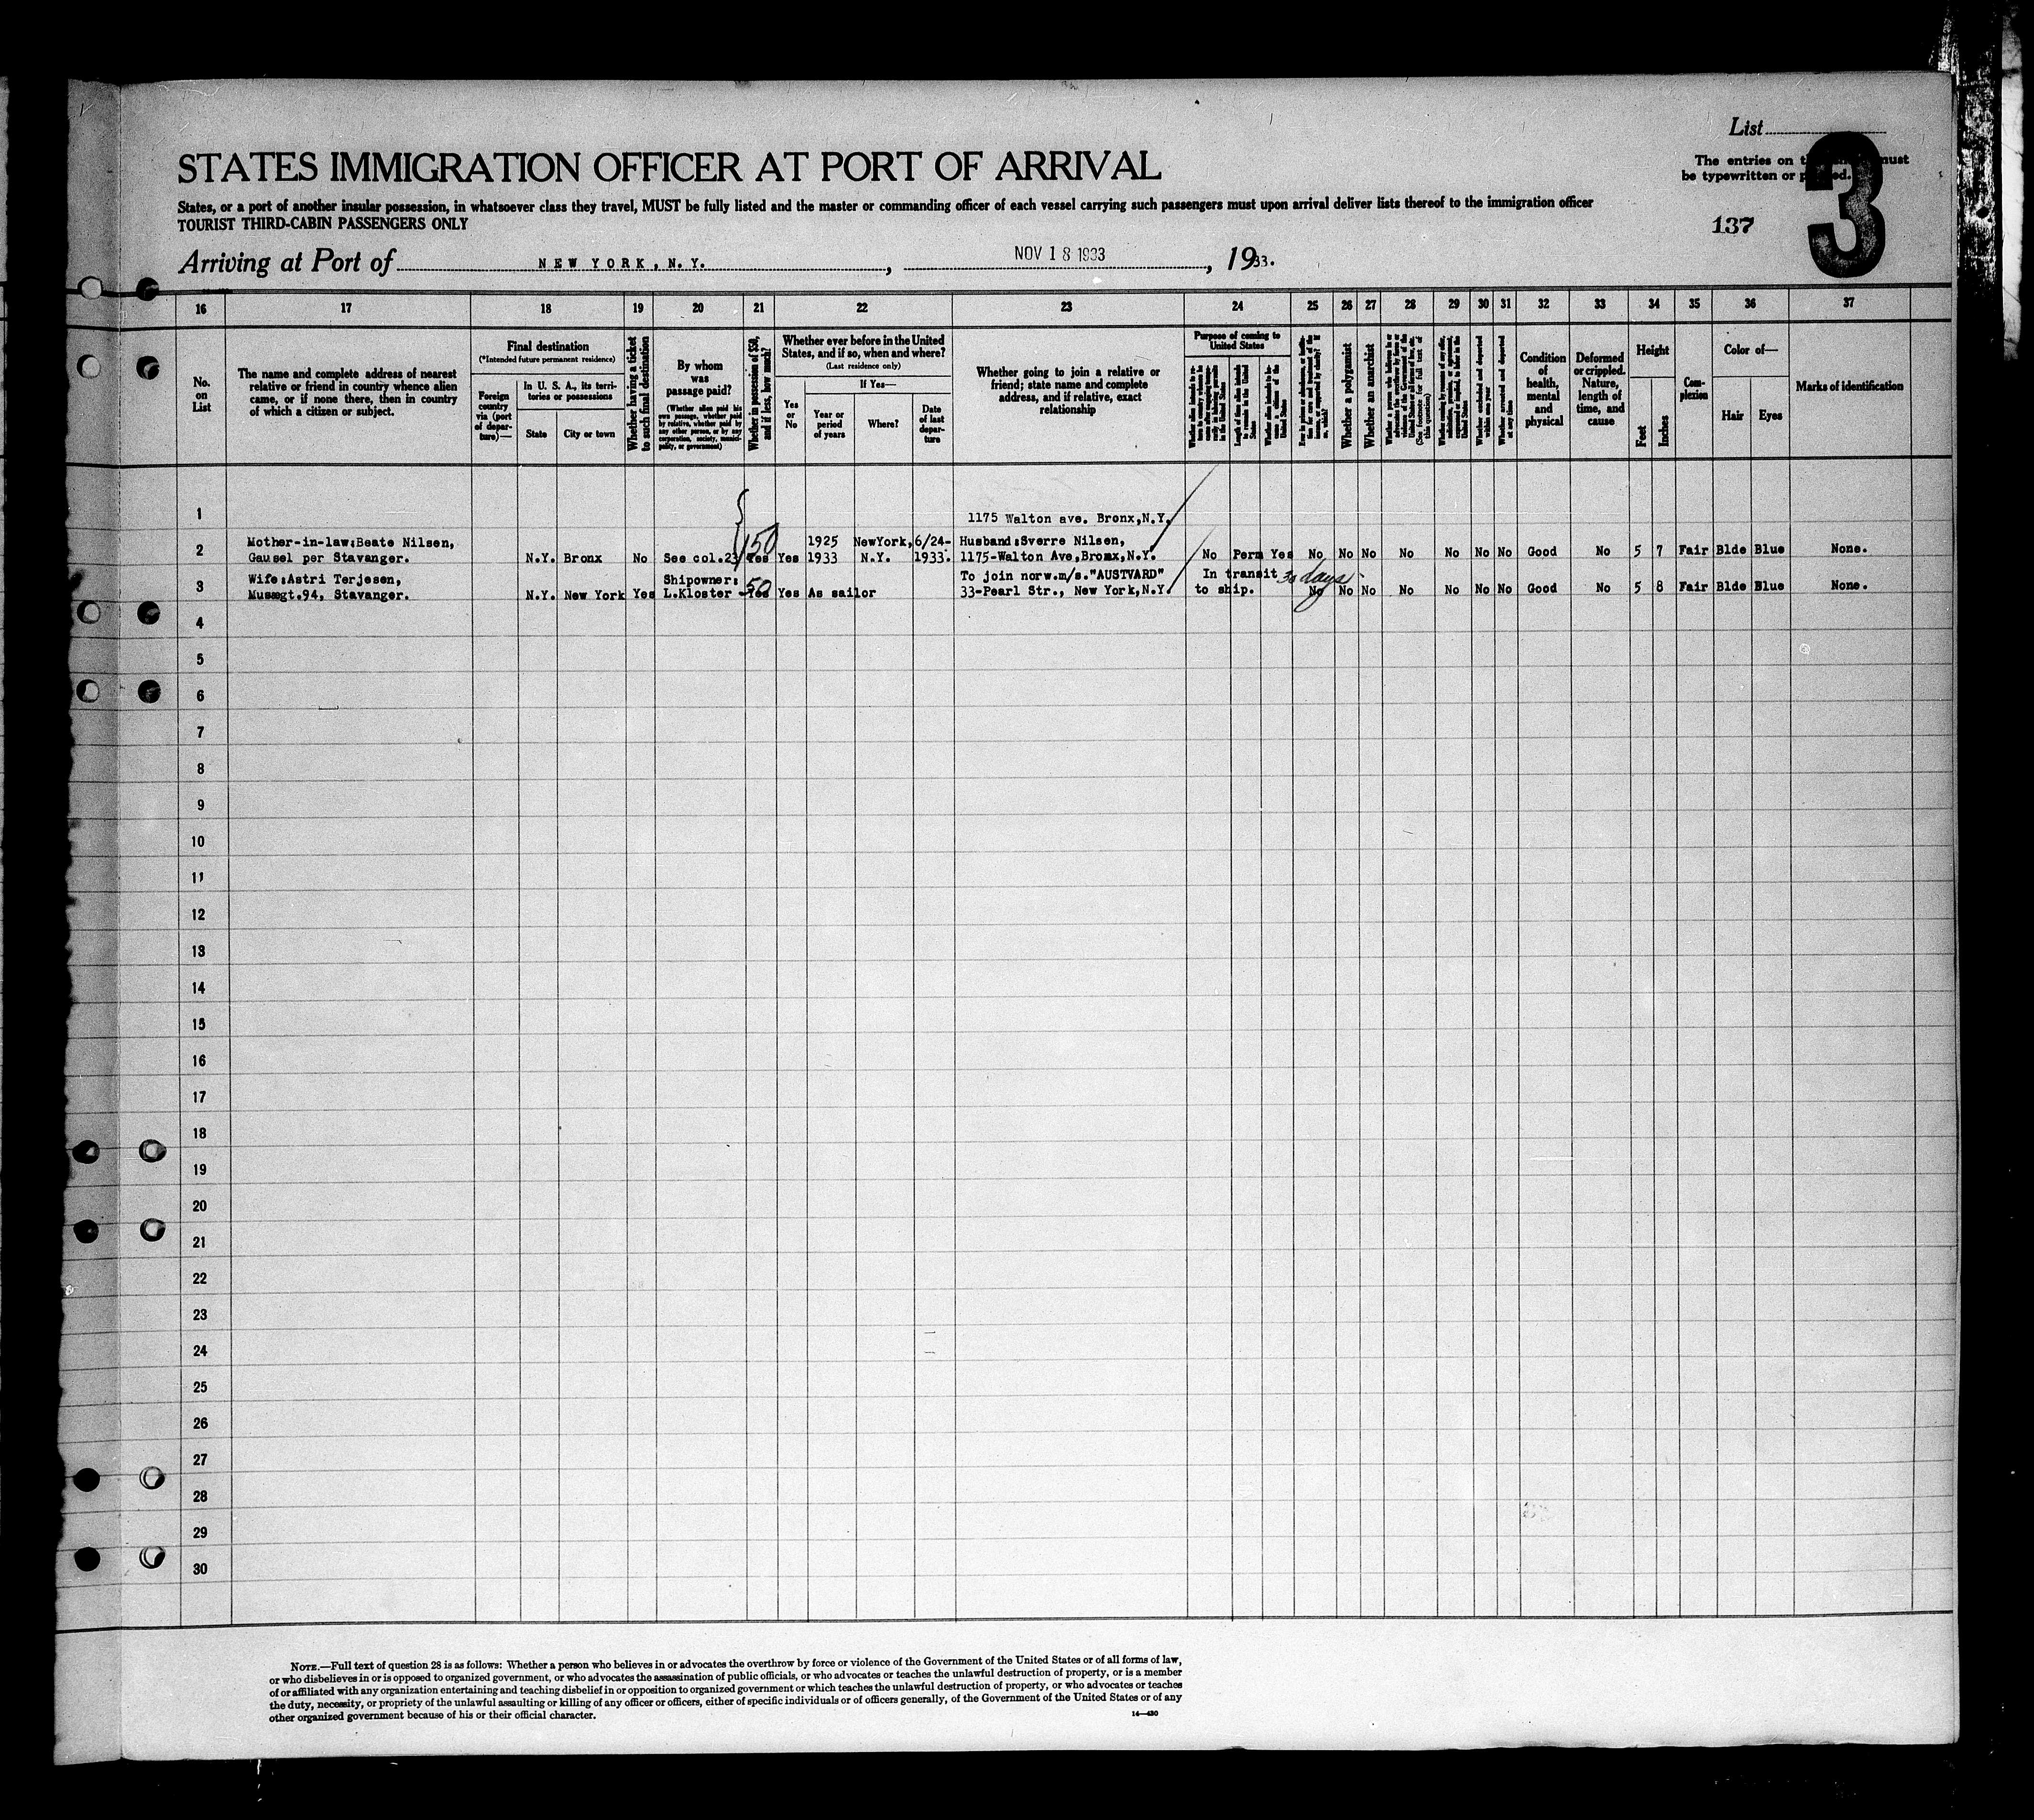 List
3
The entries on must
be typewritten or
STATES IMMIGRATION OFFICER AT PORT OF ARRIVAL
States, or a port of another insular possession, in whatsoever class they travel, MUST be fully listed and the master or commanding officer of each vessel carrying such passengers must upon arrival deliver lists thereof to the immigration officer
TOURIST THIRD-CABIN PASSENGERS ONLY
137
Arriving at Port of NEW YORK, N.Y., NOV 18 1933, 1933.
16 17 18 19 20 21 22 23 24 25 26 27 28 29 30 31 32 33 34 35 36 37
No. on List
The name and complete address of nearest
relative or friend in country whence alien
came, or if none there, then in country
of which a citizen or subject.
Final destination
(*Intended future permanent residence)
Foreign country via (port of departure)—
In U. S. A., its territories or possessions
State
City or town
Whether having a ticket to such final destination
By whom was passage paid?
(Whether alien paid his own passage, whether paid by relative, whether paid by any other person, or by any corporation, society, municipality, or government)
Whether in possession of $50, and if less, how much?
Whether ever before in the United
States, and if so, when and where?
(Last residence only)
Yes or No
If Yes—
Year or period of years
Where?
Date of last departure
Whether going to join a relative or
friend; state name and complete
address, and if relative, exact
relationship
Purpose of coming to
United States
Whether a polygamist
Whether an anarchist
Condition of health, mental and physical
Deformed or crippled. Nature, length of time, and cause
Height
Feet
Inches
Complexion
Color of—
Hair
Eyes
Marks of identification
1
1175 Walton ave. Bronx,N.Y.
2
Mother-in-law:Beate Nilsen, 150 1925 NewYork, 6/24- Husband:Sverre Nilsen,
Gausel per Stavanger. N.Y. Bronx No See col.23 Yes Yes 1933 N.Y. 1933. 1175-Walton Ave,Bronx,N.Y. No Perm Yes No No No No No No No Good No 5 7 Fair Blde Blue None.
3
Wife:Astri Terjesen, Shipowner: To join norw.m/s."AUSTVARD" In transit 30 days
Musægt.94, Stavanger. N.Y. New York Yes L.Kloster 50 Yes Yes As sailor 33-Pearl Str., New York,N.Y. to ship. No No No No No No No Good No 5 8 Fair Blde Blue None.
4
5
6
7
8
9
10
11
12
13
14
15
16
17
18
19
20
21
22
23
24
25
26
27
28
29
30
NOTE.—Full text of question 28 is as follows: Whether a person who believes in or advocates the overthrow by force or violence of the Government of the United States or of all forms of law,
or who disbelieves in or is opposed to organized government, or who advocates the assassination of public officials, or who advocates or teaches the unlawful destruction of property, or is a member
of or affiliated with any organization entertaining and teaching disbelief in or opposition to organized government or which teaches the unlawful destruction of property, or who advocates or teaches
the duty, necessity, or propriety of the unlawful assaulting or killing of any officer or officers, either of specific individuals or of officers generally, of the Government of the United States or of any
other organized government because of his or their official character.
14—430